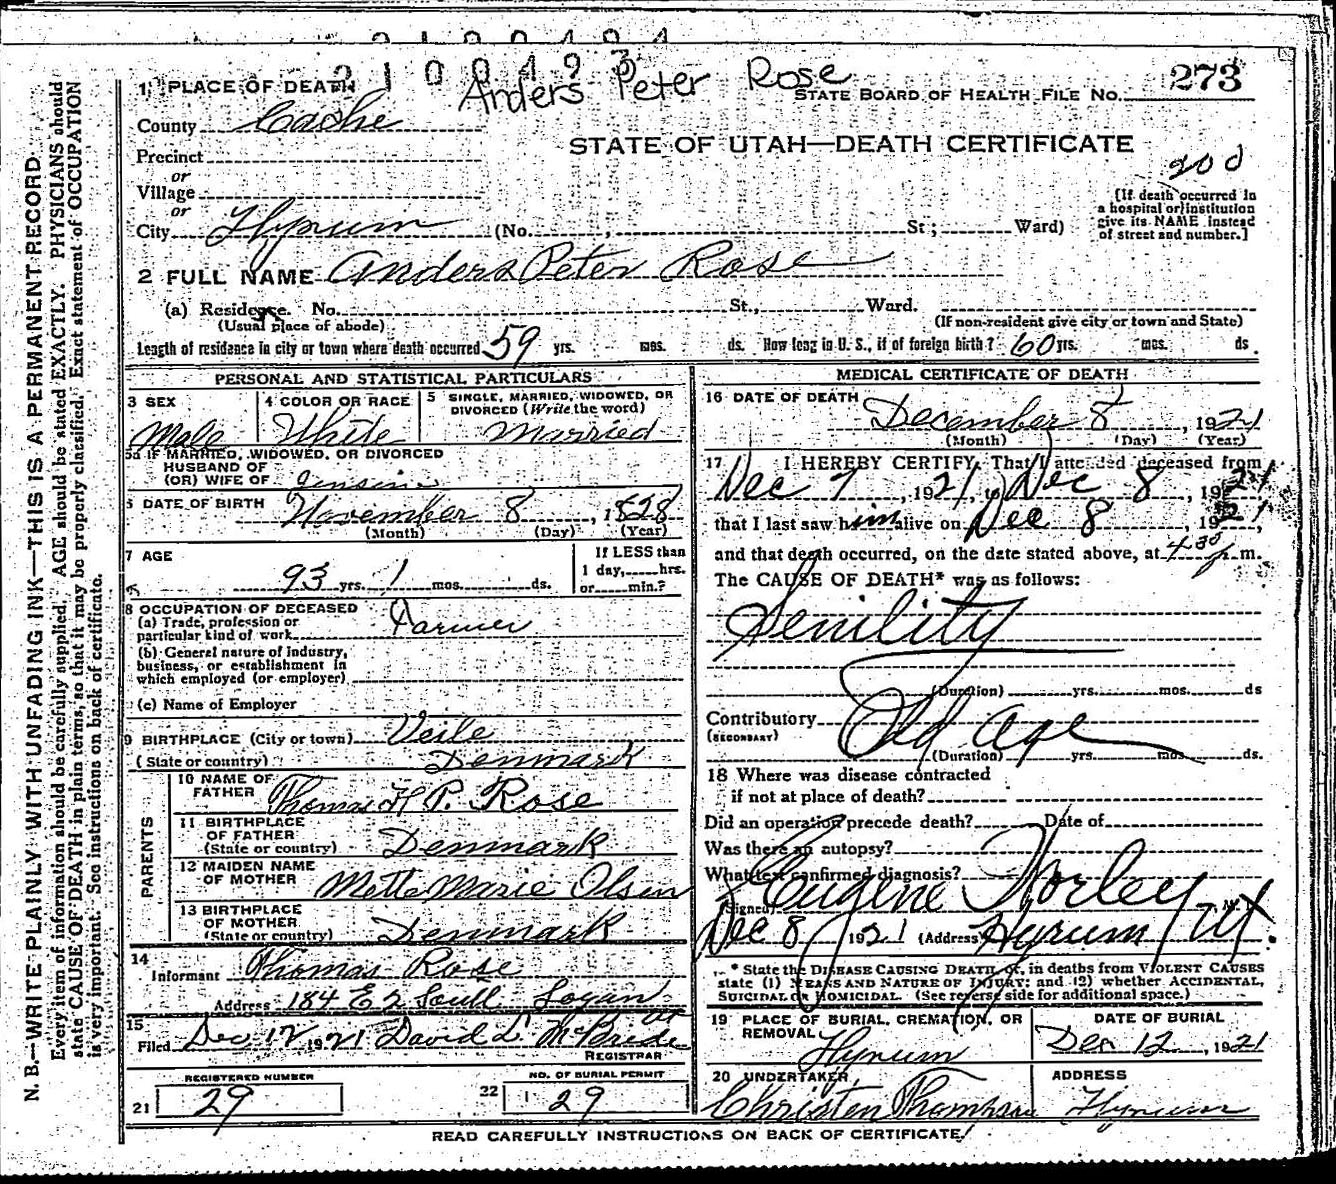 2100493
Anders Peter Rose
1 PLACE OF DEATH
STATE BOARD OF HEALTH FILE No. 273
County Cache
STATE OF UTAH—DEATH CERTIFICATE
Precinct
or
Village
or
City Hyrum (No. , St; Ward)
200
[If death occurred in
a hospital or institution
give its NAME instead
of street and number.]
2 FULL NAME Anders Peter Rose
(a) Residence. No. St., Ward.
(Usual place of abode) (If non-resident give city or town and State)
Length of residence in city or town where death occurred 59 yrs. mos. ds. How long in U. S., if of foreign birth? 60 yrs. mos. ds.
PERSONAL AND STATISTICAL PARTICULARS
3 SEX Male
4 COLOR OR RACE White
5 SINGLE, MARRIED, WIDOWED, OR
DIVORCED (Write the word) Married
5a IF MARRIED, WIDOWED, OR DIVORCED
HUSBAND OF
(OR) WIFE OF Jensine
6 DATE OF BIRTH November 8, 1828
(Month) (Day) (Year)
7 AGE 93 yrs. 1 mos. ds.
If LESS than
1 day, hrs.
or min.?
8 OCCUPATION OF DECEASED
(a) Trade, profession or
particular kind of work Farmer
(b) General nature of industry,
business, or establishment in
which employed (or employer)
(c) Name of Employer
9 BIRTHPLACE (City or town) Veile
(State or country) Denmark
PARENTS
10 NAME OF
FATHER Thomas H P. Rose
11 BIRTHPLACE
OF FATHER
(State or country) Denmark
12 MAIDEN NAME
OF MOTHER Mette Marie Olsen
13 BIRTHPLACE
OF MOTHER
(State or country) Denmark
14
Informant Thomas Rose
Address 184 E 2 South Logan
15
Filed Dec 12 1921 David L. McBride
REGISTRAR
REGISTERED NUMBER
21 29
NO. OF BURIAL PERMIT
22 29
MEDICAL CERTIFICATE OF DEATH
16 DATE OF DEATH
December 8, 1921
(Month) (Day) (Year)
17 I HEREBY CERTIFY, That I attended deceased from
Dec 7, 1921, to Dec 8, 1921
that I last saw him alive on Dec 8, 1921,
and that death occurred, on the date stated above, at 4:30 p. m.
The CAUSE OF DEATH* was as follows:
Senility
(Duration) yrs. mos. ds
Contributory Old Age
(SECONDARY)
(Duration) yrs. mos. ds.
18 Where was disease contracted
if not at place of death?
Did an operation precede death? Date of
Was there an autopsy?
What test confirmed diagnosis?
(Signed) Eugene Worley M.
Dec 8, 1921 (Address Hyrum Ut.
* State the DISEASE CAUSING DEATH, or, in deaths from VIOLENT CAUSES
state (1) MEANS AND NATURE OF INJURY; and (2) whether ACCIDENTAL,
SUICIDAL OR HOMICIDAL. (See reverse side for additional space.)
19 PLACE OF BURIAL, CREMATION, OR
REMOVAL
Hyrum
DATE OF BURIAL
Dec 12, 1921
20 UNDERTAKER
Christen Thompson
ADDRESS
Hyrum
READ CAREFULLY INSTRUCTIONS ON BACK OF CERTIFICATE!
N. B.—WRITE PLAINLY WITH UNFADING INK—THIS IS A PERMANENT RECORD
Every item of information should be carefully supplied. AGE should be stated EXACTLY. PHYSICIANS should
state CAUSE OF DEATH in plain terms, so that it may be properly classified. Exact statement of OCCUPATION
is very important. See instructions on back of certificate.